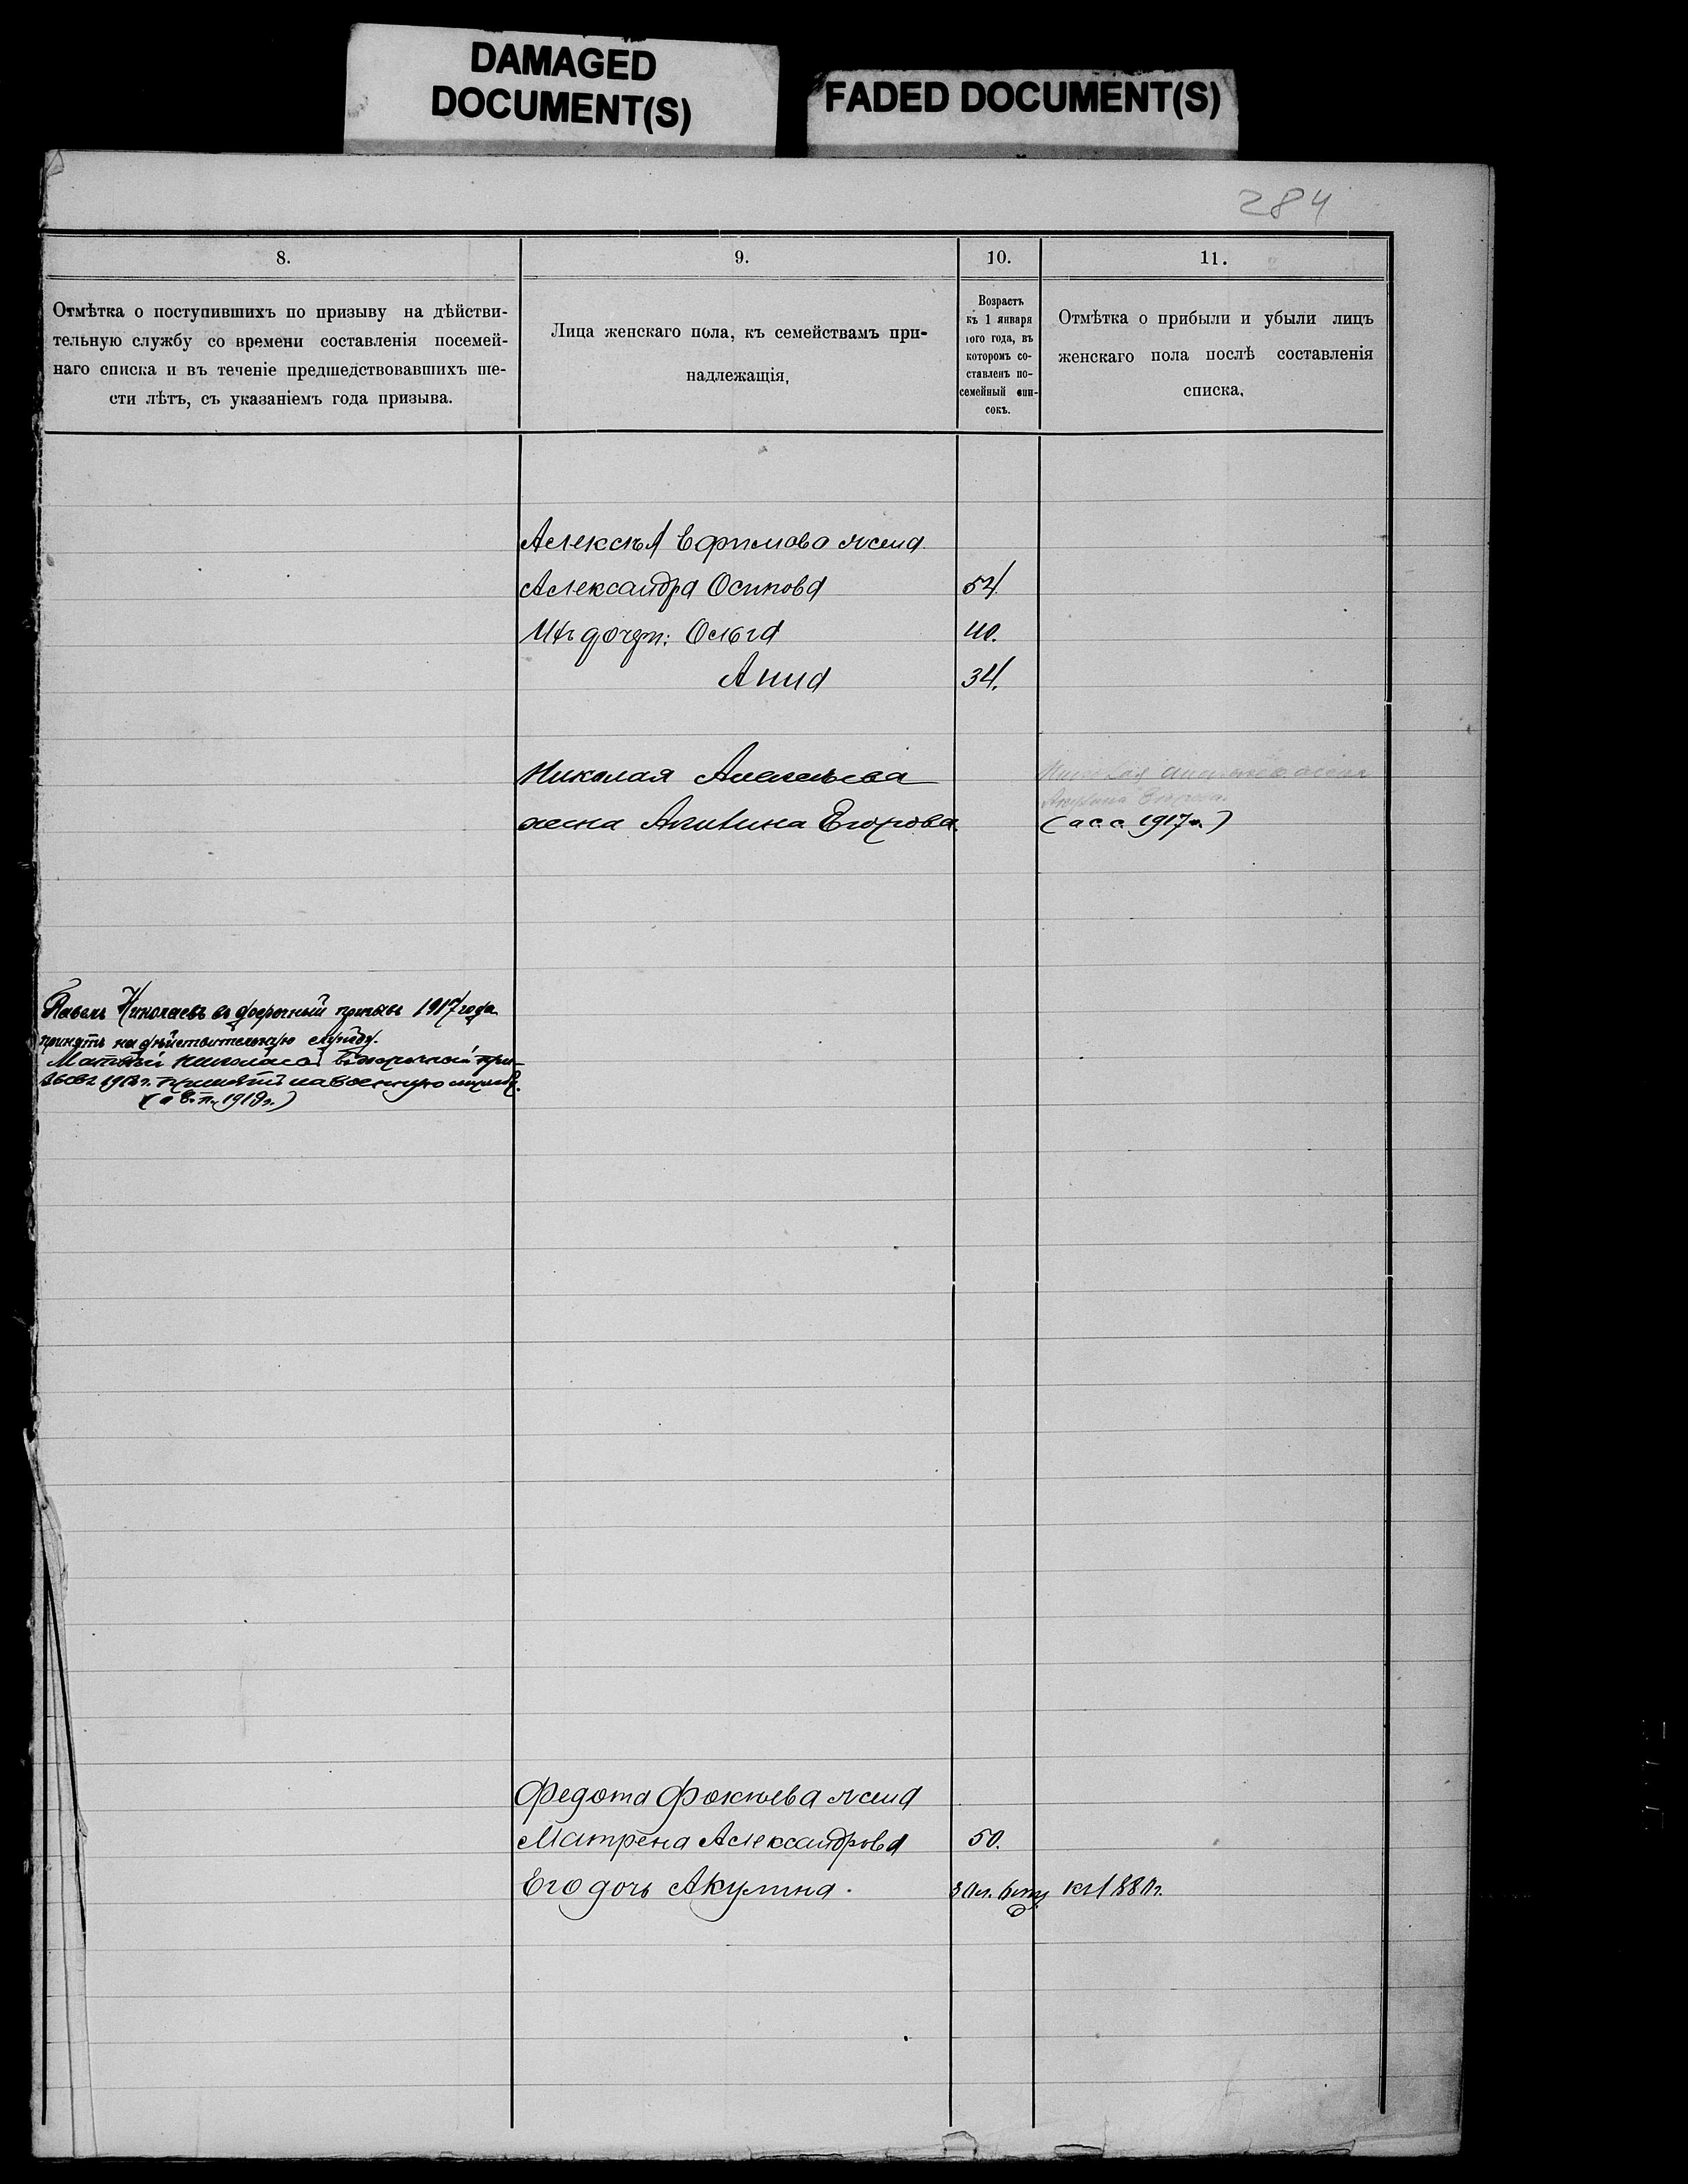 DAMAGED
DOCUMENT(S)
FADED DOCUMENT(S)
284
8.
9.
10.
11.
Отмѣтка о поступившихъ по призыву на дѣйстви-
тельную службу со времени составленія посемей-
наго списка и въ теченіе предшедствовавшихъ ше-
сти лѣтъ, съ указаніемъ года призыва.
Лица женскаго пола, къ семействамъ при-
надлежащія,
Возрастъ
къ 1 января
того года, въ
которомъ со-
ставленъ по-
семейный спи-
сокъ.
Отмѣтка о прибыли и убыли лицъ
женскаго пола послѣ составленія
списка,
Алексѣя Ефимова жена
Александра Осипова 54.
Ихъ дочери: Ольга 40.
Анна 34.
Николая Алексѣева
жена Егорова
Егорова
(1917г.)
Павелъ Николаевъ въ досрочный призывъ 1917 года
принятъ на дѣйствительную службу.
Матвѣй Николаевъ въ досрочный при-
зывъ принятъ на военную службу.
Федота Фокѣева жена
Матрена Александрова 50.
Его дочь Акулина. 30л. къ 1880г.